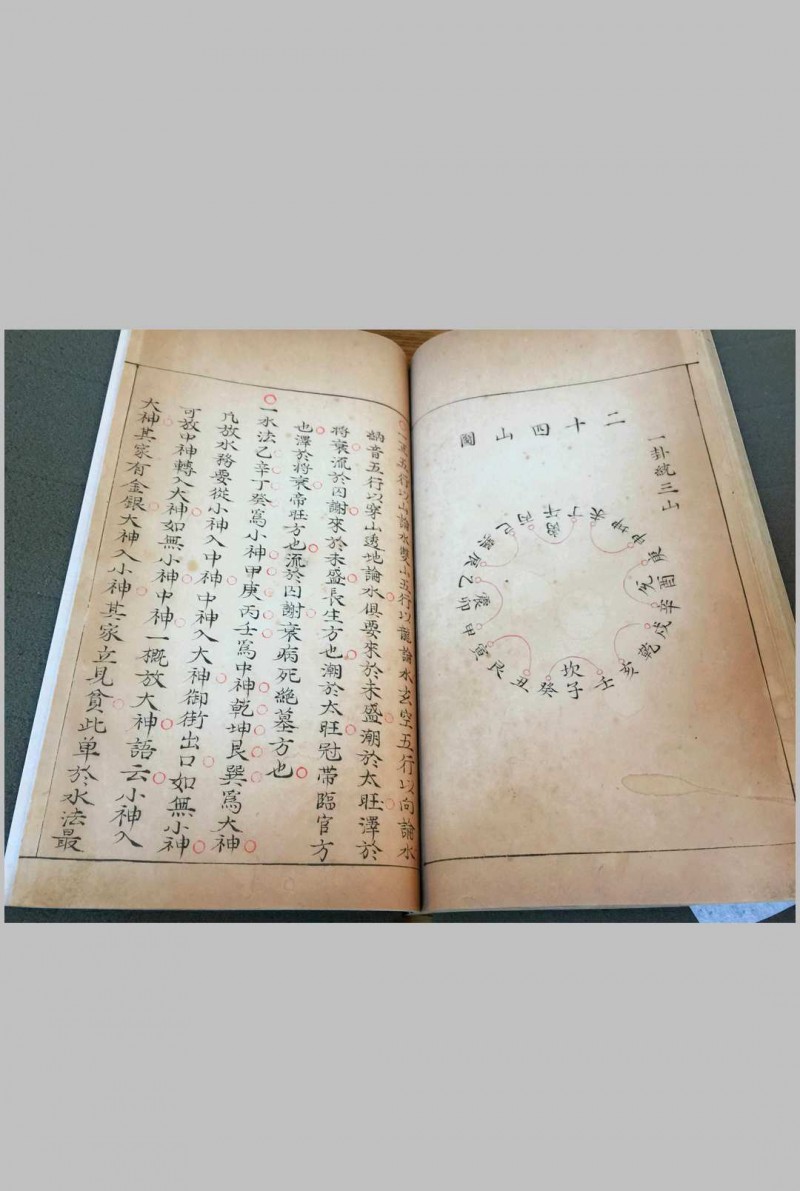 一卦統三山
二十四山圖
巳丙离午丁未坤申庚兌酉辛戌乾亥壬坎子癸丑艮寅甲震卯乙辰巽
一正五行以山論水雙山五行以龍論水玄空五行以向論水
納音五行以穿山透地論水俱要來於未盛潮於太旺澤於
將衰流於囚謝來於未盛長生方也潮於太旺冠帶臨官方
也澤於將衰帝旺方也流於囚謝衰病死絕墓方也
一水法乙辛丁癸爲小神甲庚丙壬爲中神乾坤艮巽爲大神
凡放水務要從小神入中神中神入大神御街出口如無小神
可放中神轉入大神如無小神中神一概放大神語云小神入
大神其家有金銀大神入小神其家立見貧此单於水法最